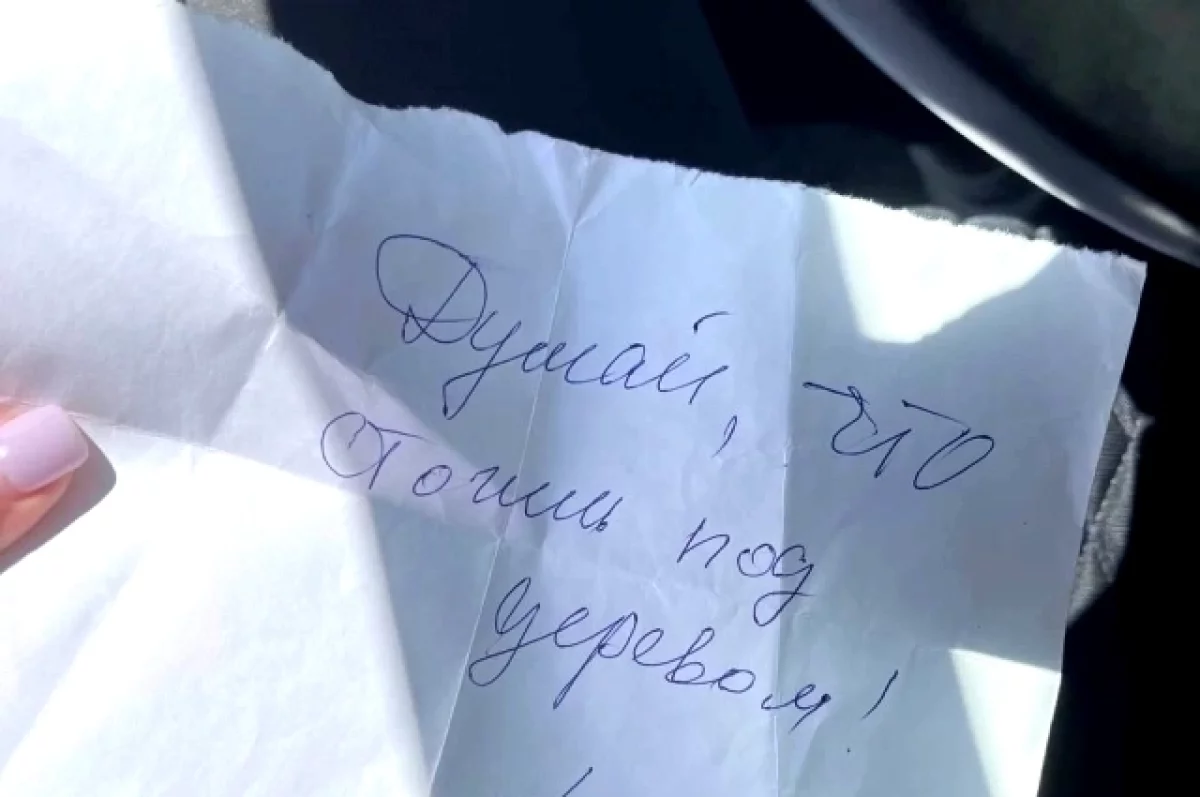 Думай, что
стоишь под
деревом!